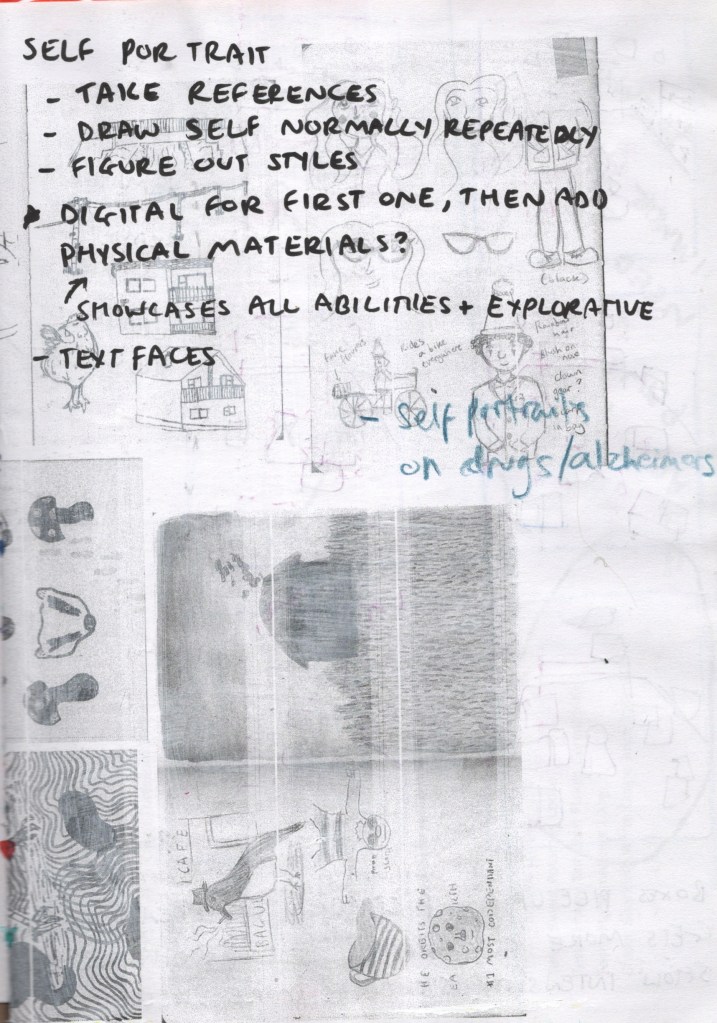 SELF PORTRAIT
- TAKE REFERENCES
- DRAW SELF NORMALLY REPEATEDLY
- FIGURE OUT STYLES
DIGITAL FOR FIRST ONE, THEN ADD
PHYSICAL MATERIALS?
SHOWCASES ALL ABILITIES + EXPLORATIVE
- TEXT FACES
(blacu)
Rainbow
hair
clown
Rides
a bike
everywhere
- Self portraits
on drugs/alzheimers
CAFE
HE ORBITS THE
#1 MOST CODEPENDANT